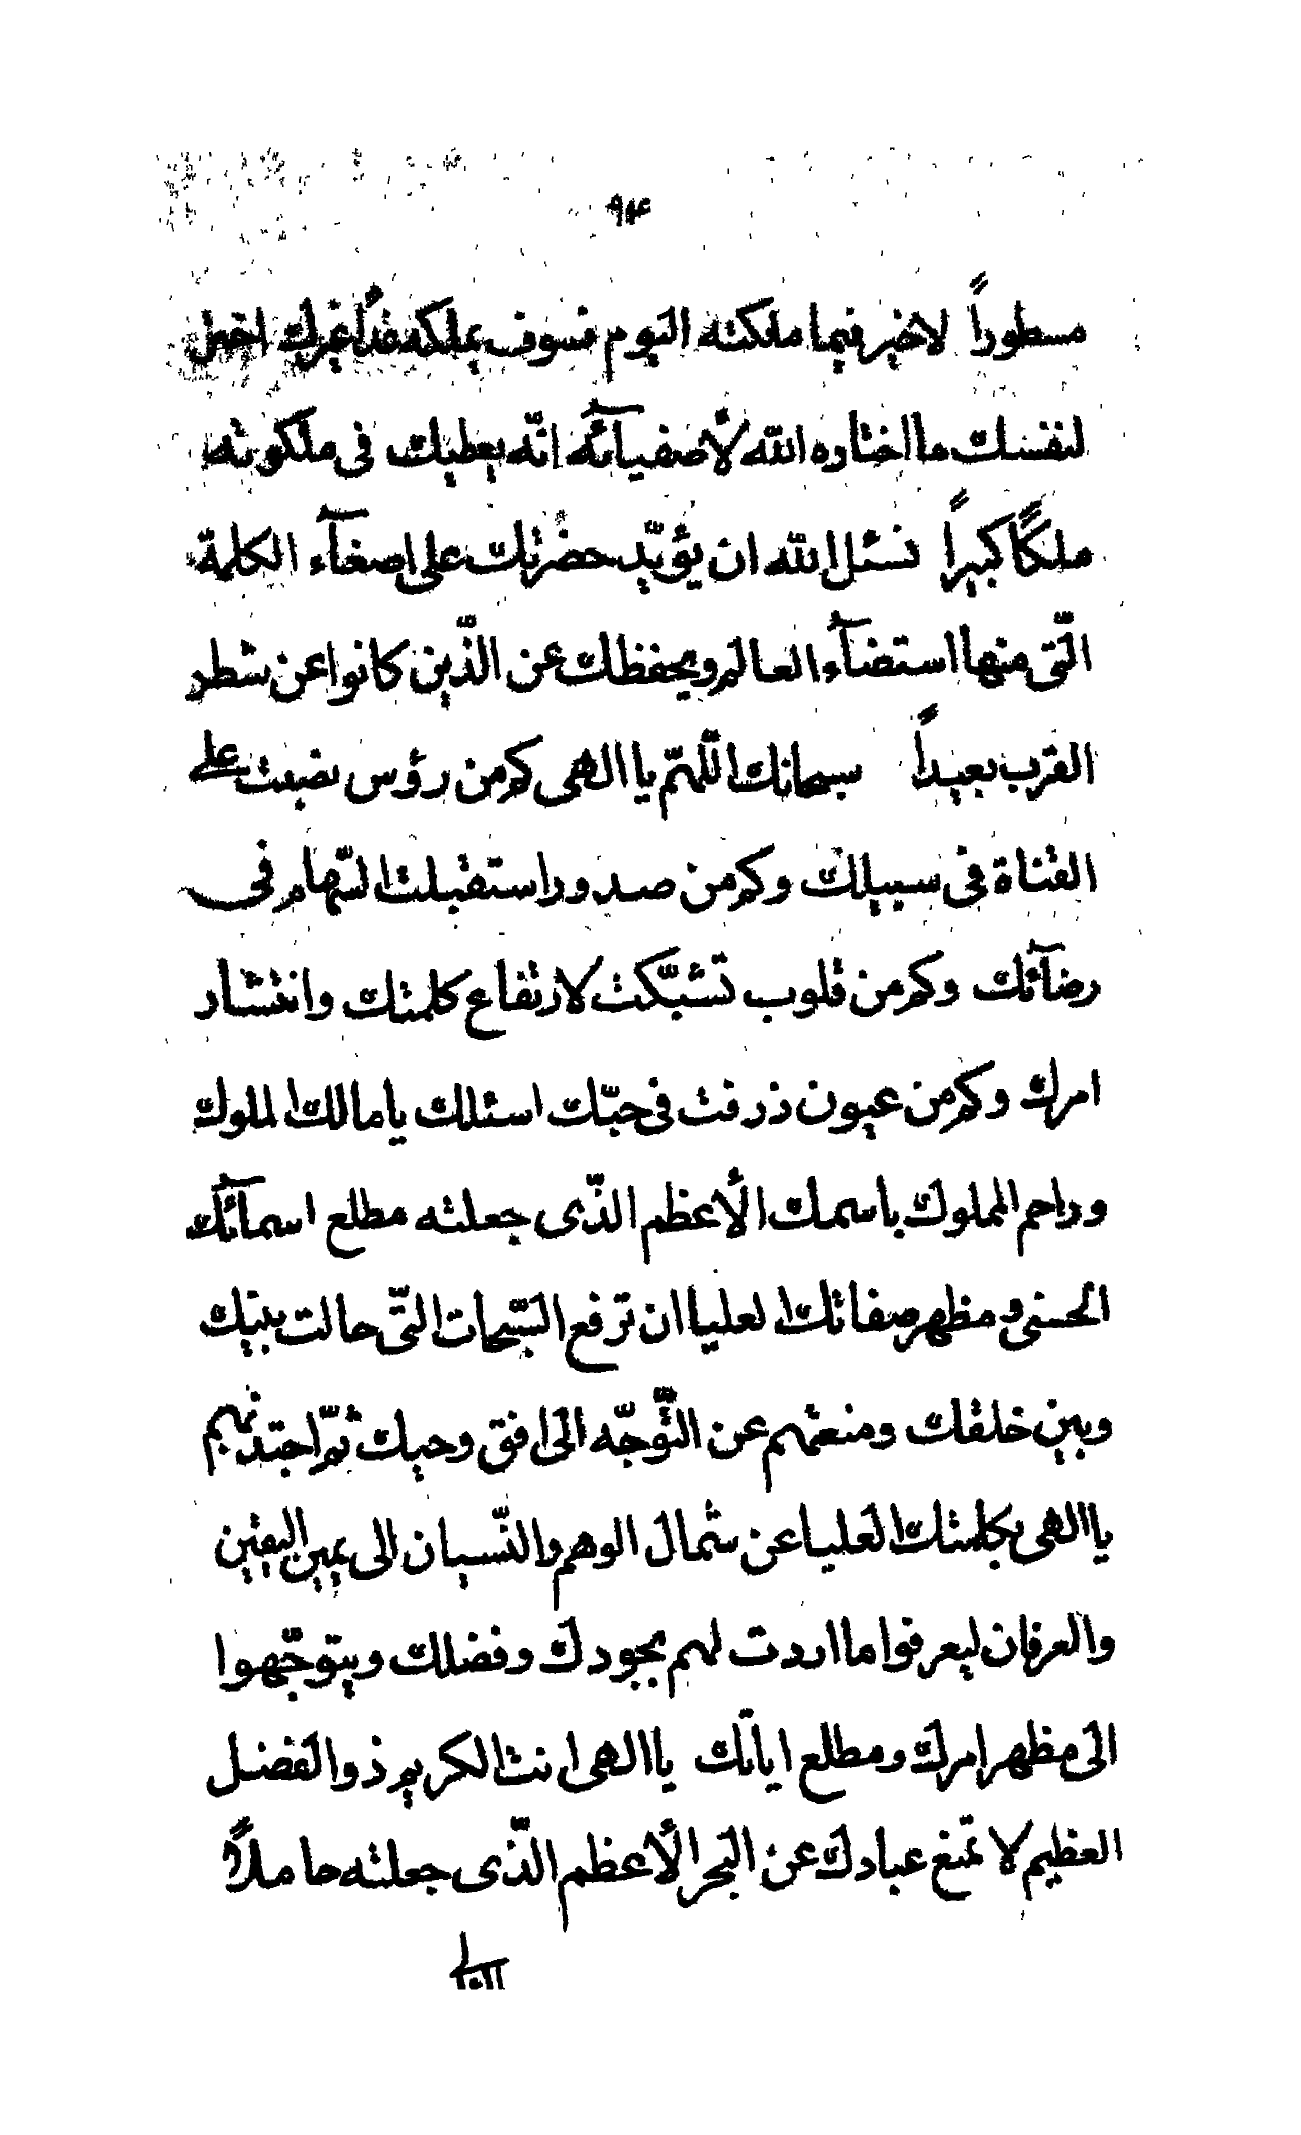 ٩٤
مسطوراً لاخير فيما ملكته اليوم فسوف يملكه غداً غيرك اختر
لنفسك ما اختاره الله لأصفيآئه انّه يعطيك فى ملكوته
ملكاً كبيراً نسئل الله ان يؤيّد حضرتك على اصغآء الكلمة
الّتى منها استضآء العالم ويحفظك عن الّذين كانوا عن شطر
القرب بعيداً سبحانك اللّهمّ يا الهى كم من رؤس نصبت على
القناة فى سبيلك وكم من صدور استقبلت السّهام فى
رضآئك وكم من قلوب تشبّكت لارتفاع كلمتك وانتشار
امرك وكم من عيون ذرفت فى حبّك اسئلك يا مالك الملوك
وراحم المملوك باسمك الأعظم الّذى جعلته مطلع اسمآئك
الحسنى ومظهر صفاتك العليا ان ترفع السّبحات الّتى حالت بينك
وبين خلقك ومنعتهم عن التّوجّه الى افق وحيك ثمّ اجتذبهم
يا الهى بكلمتك العليا عن شمال الوهم والنّسيان الى يمين اليقين
والعرفان ليعرفوا ما اردت لهم بجودك وفضلك ويتوجّهوا
الى مظهر امرك ومطلع اياتك يا الهى انت الكريم ذو الفضل
العظيم لا تمنع عبادك عن البحر الأعظم الّذى جعلته حاملاً